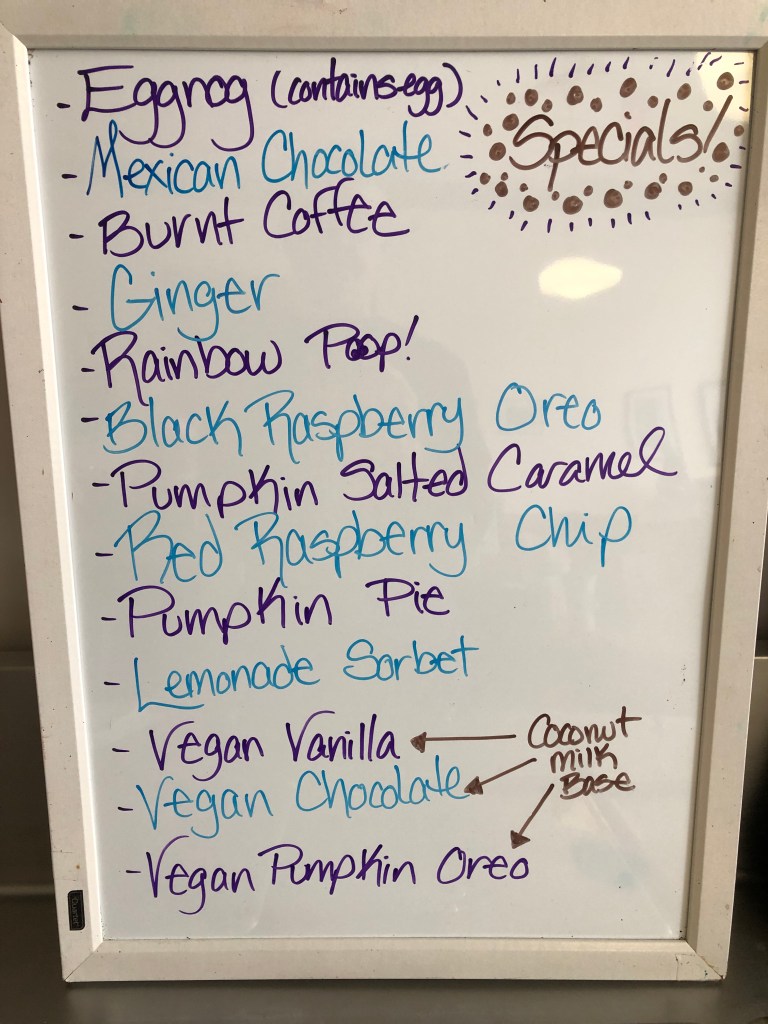 - Eggnog (contains egg)
Specials!
- Mexican Chocolate
- Burnt Coffee
- Ginger
- Rainbow Poop!
- Black Raspberry Oreo
- Pumpkin Salted Caramel
- Red Raspberry Chip
- Pumpkin Pie
- Lemonade Sorbet
- Vegan Vanilla
- Vegan Chocolate
- Vegan Pumpkin Oreo
Coconut
Milk
Base
Quartet